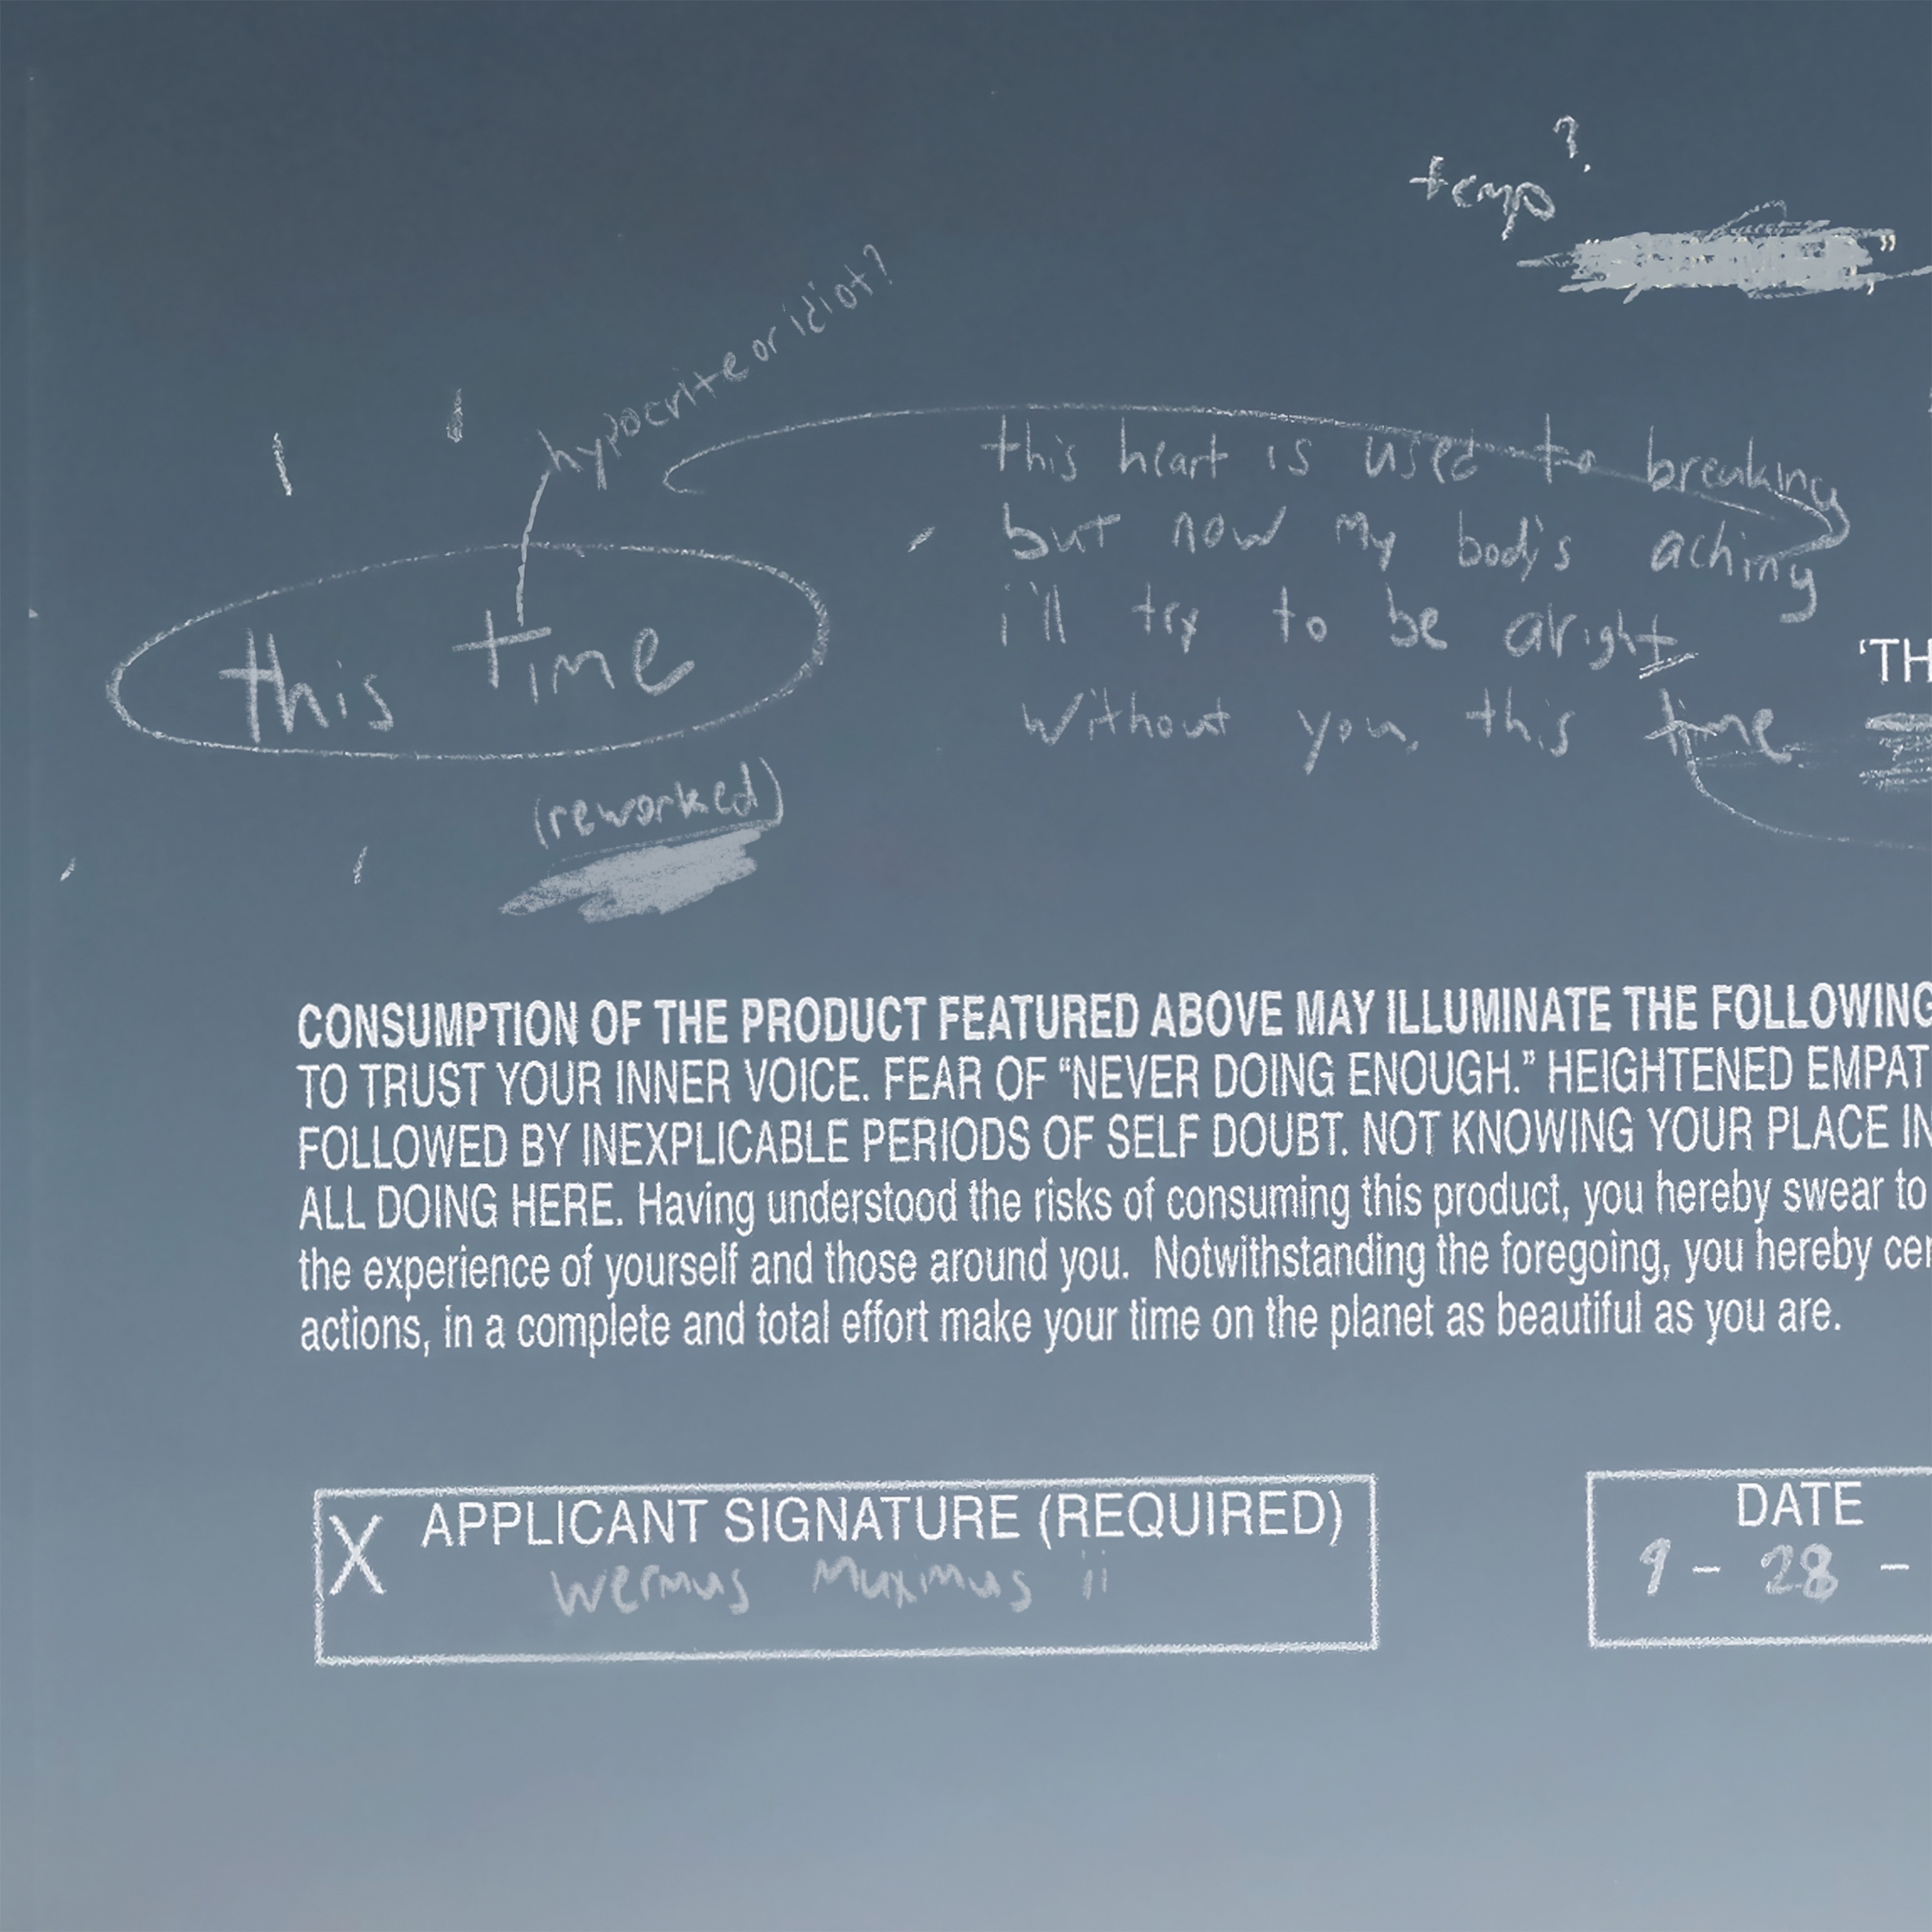 temp?
hypocrite or idiot?
this heart is used to breaking
but now my body's aching
i'll try to be alright
without you, this time
this time
(reworked)
'TH
CONSUMPTION OF THE PRODUCT FEATURED ABOVE MAY ILLUMINATE THE FOLLOWING
TO TRUST YOUR INNER VOICE. FEAR OF “NEVER DOING ENOUGH.” HEIGHTENED EMPAT
FOLLOWED BY INEXPLICABLE PERIODS OF SELF DOUBT. NOT KNOWING YOUR PLACE IN
ALL DOING HERE. Having understood the risks of consuming this product, you hereby swear to
the experience of yourself and those around you. Notwithstanding the foregoing, you hereby cer
actions, in a complete and total effort make your time on the planet as beautiful as you are.
X APPLICANT SIGNATURE (REQUIRED)
wermus Maximus ii
DATE
9 - 28 -